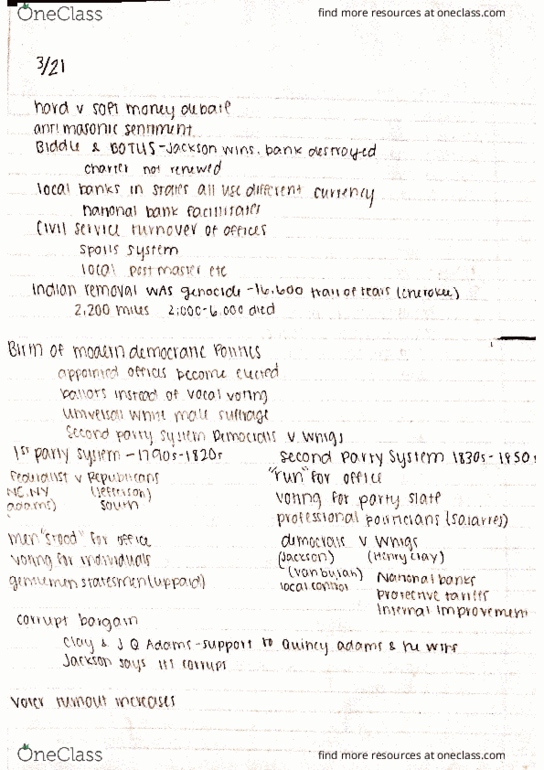 OneClass
find more resources at oneclass.com
3/21
hard v soft money debate
anti masonic sentiment
Biddle & BOTUS - Jackson wins. bank destroyed
charter not renewed
local banks in states all use different currency
national bank facilitates
Civil service turnover of offices
spoils system
local post master etc
Indian removal WAS genocide - 16,600 trail of tears (cherokee)
2,200 miles 2,000-6,000 died
Birth of modern democratic Politics
appointed offices become elected
ballots instead of vocal voting
universal white male suffrage
Second party system Democrats v. Whigs
1st party system - 1790s-1820s
Federalist v Republicans
NC.NY (Jefferson)
adams) south
men "stood" for office
voting for individuals
gentlemen statesmen (unpaid)
Second Party System 1830s-1850s
"run" for office
voting for party slate
professional politicians (salaries)
democrats v Whigs
(Jackson) (Henry Clay)
(van buren)
local control
National banks
Protective tariffs
Internal Improvement
corrupt bargain
Clay & J Q Adams - support to Quincy adams & he wins
Jackson says its corrupt
voter turnout increases
OneClass
find more resources at oneclass.com